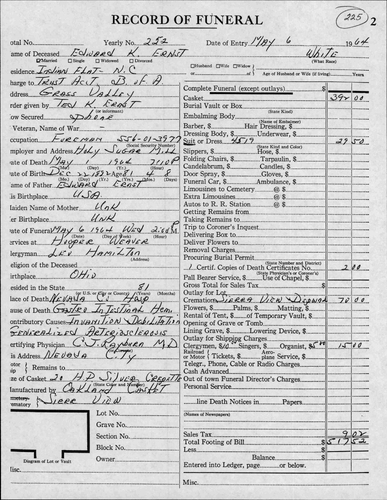 RECORD OF FUNERAL
225
2
Total No. Yearly No. 252 Date of Entry May 6 1964
Name of Deceased Edward K. Ernst White
Married Single Widowed Divorced (What Race)
Residence Indian Flat - N.C Husband Wife Widow of
Charge to Trust Act, B of A Age of Husband or Wife (if living) Years
Address Grass Valley Complete Funeral (except outlays) $
Order given by Ted K. Ernst Casket 392 00
How Secured Phone Burial Vault or Box
(State Kind)
Veteran, Name of War - Embalming Body
(Name of Embalmer)
Occupation Foreman 556-01-3977 Barber, $ Hair Dressing, $
(Social Security Number) Dressing Body, $ Underwear, $
Employer and Address Holly Sugar Mill Suit or Dress 4519 29 50
Slippers, $ Hose, $
Date of Death May 1964 7:10 P Folding Chairs, $ Tarpaulin, $
Date of Birth Dec 22 1882 Age 81 4 8 Candelabrum, $ Candles, $
Door Spray, $ Gloves, $
Name of Father Edward Ernst Funeral Car, $ Ambulance, $
His Birthplace USA Limousines to Cemetery @ $
Extra Limousines @ $
Maiden Name of Mother Unk Autos to R. R. Station @ $
Getting Remains from
Her Birthplace Unk Taking Remains to
Date of Funeral May 6 1964 Wed 2:00 P Trip to Coroner's Inquest
Delivering Box to
Services at Hooper Weaver Deliver Flowers to
Clergyman Lev Hamilton Removal Charges
Procuring Burial Permit
(State Number and District)
Religion of the Deceased 1 Certif. Copies of Death Certificate 2 00
Birthplace Ohio Pall Bearer Service, $ Use of Chapel, $
Resided in the State 81 Gross Total for Sales Tax $
(U.S. or City or County) Outlay for Lot
Place of Death Nevada Co Hosp Cremation Sierra View Disposal 70 00
Cause of Death Gastro Intestinal Hem Flowers, $ Palms, $ Matting, $
Rental of Tent, $ of Temporary Vault, $
Contributory Causes Inanition & Debilitation Opening of Grave or Tomb
Generalized Arteriosclerosis Lining Grave, $ Lowering Device, $
Outlay for Shipping Charges
Certifying Physician C J Rayburn M D Clergymen, $10 Singers, $ Organist, $5.00 15 00
His Address Nevada City Railroad or Motor Tickets, $ Aeroplane Service, $
Telegr., Phone, Cable or Radio Charges
Remains to Cash Advanced
Size of Casket 20 H D Silver Out of town Funeral Director's Charges
(State Color and Number) Personal Service
Manufactured by Oakland Casket
Sierr View line Death Notices in Papers
Lot No. (Names of Newspapers)
Grave No.
Section No. Sales Tax 9.02
Block No. Total Footing of Bill $ 517 52
Less
Owner Balance $
Diagram of Lot or Vault Entered into Ledger, page or below.
Misc. Misc.